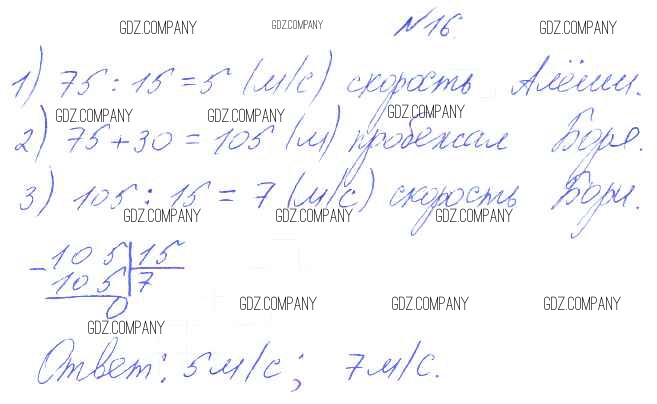 GDZ.COMPANY GDZ.COMPANY №16. GDZ.COMPANY
1) 75 : 15 = 5 (м/с) скорость Алёши.
GDZ.COMPANY GDZ.COMPANY GDZ.COMPANY
2) 75 + 30 = 105 (м) пробежал Боря.
3) 105 : 15 = 7 (м/с) скорость Бори.
GDZ.COMPANY GDZ.COMPANY GDZ.COMPANY
- 105 | 15
105 | 7
0
GDZ.COMPANY GDZ.COMPANY GDZ.COMPANY
GDZ.COMPANY
Ответ: 5 м/с; 7 м/с.